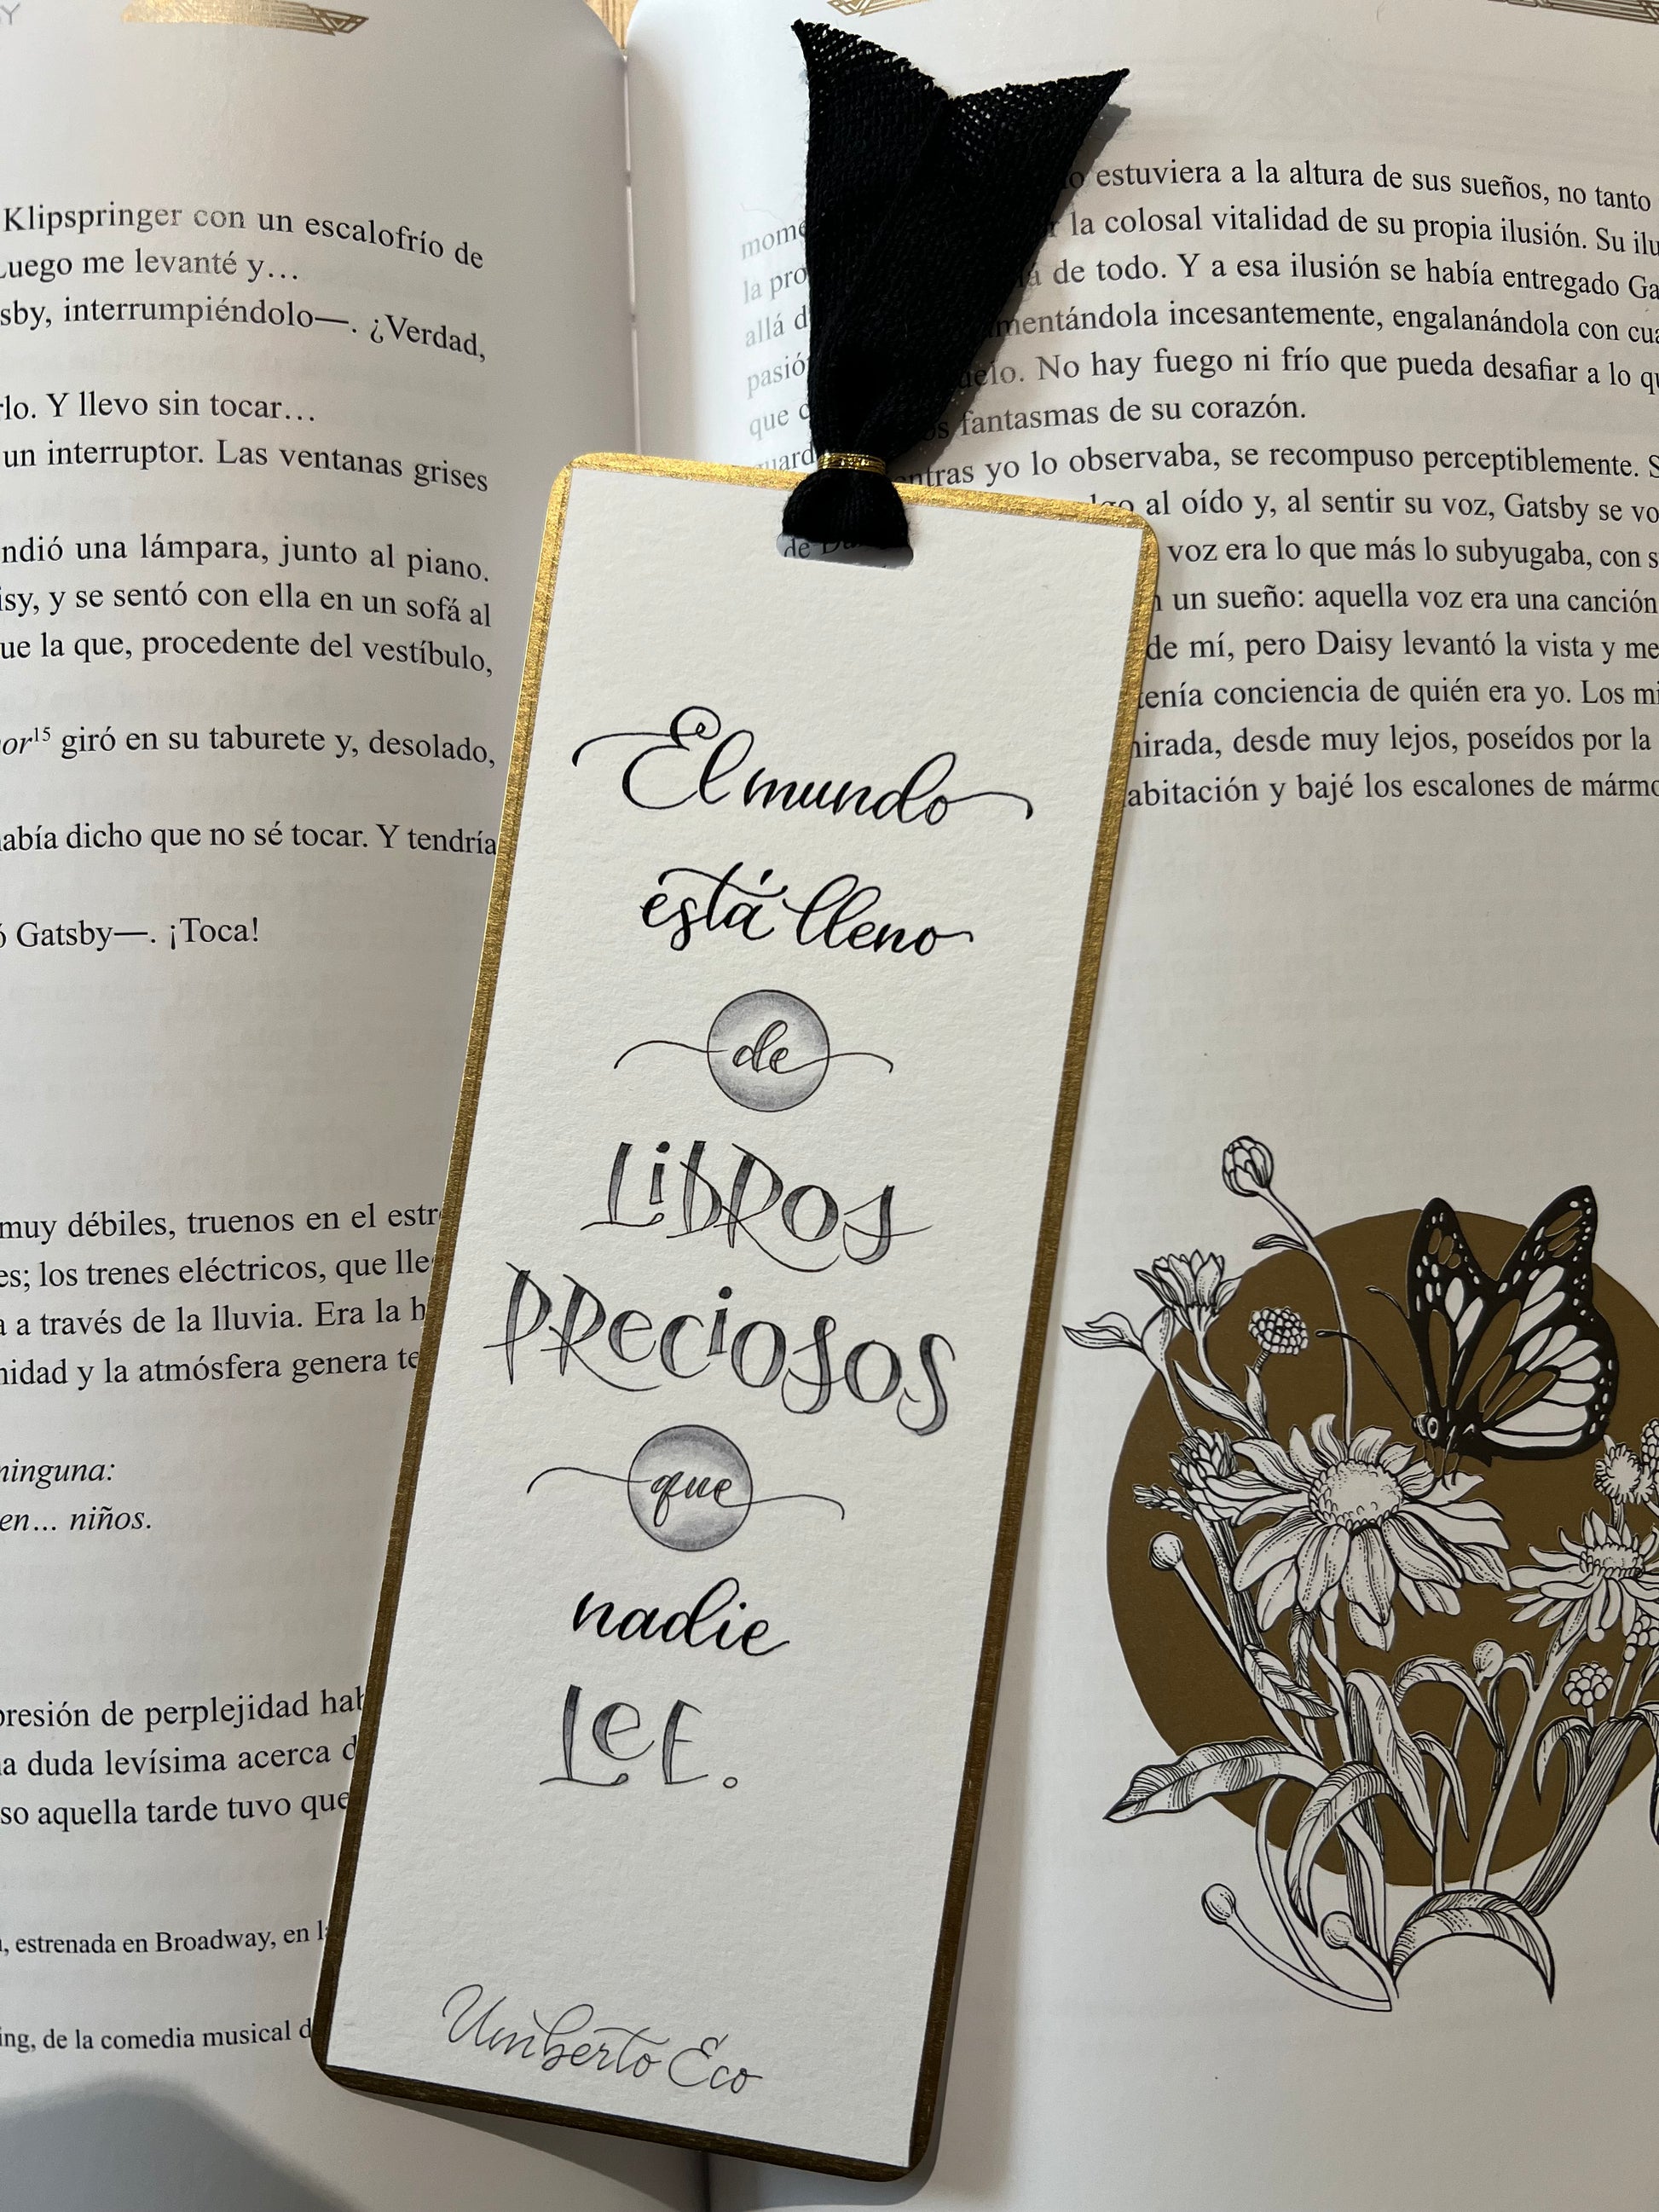 Klipspringer con un escalofrío de
Luego me levanté y…
sby, interrumpiéndolo—. ¿Verdad,
rlo. Y llevo sin tocar…
un interruptor. Las ventanas grises
ndió una lámpara, junto al piano.
isy, y se sentó con ella en un sofá al
ue la que, procedente del vestíbulo,
or15 giró en su taburete y, desolado,
había dicho que no sé tocar. Y tendría
ó Gatsby—. ¡Toca!
muy débiles, truenos en el estr
es; los trenes eléctricos, que lle
a a través de la lluvia. Era la h
nidad y la atmósfera genera te
ninguna:
en… niños.
presión de perplejidad hab
a duda levísima acerca d
so aquella tarde tuvo que
, estrenada en Broadway, en l
ing, de la comedia musical d
El mundo
está lleno
de
LiBROS
PReCiOSOS
que
nadie
LeE.
Umberto Eco
estuviera a la altura de sus sueños, no tanto
mome la colosal vitalidad de su propia ilusión. Su ilu
la pro de todo. Y a esa ilusión se había entregado Ga
allá d mentándola incesantemente, engalanándola con cua
pasió elo. No hay fuego ni frío que pueda desafiar a lo qu
que fantasmas de su corazón.
ntras yo lo observaba, se recompuso perceptiblemente. S
al oído y, al sentir su voz, Gatsby se vo
de voz era lo que más lo subyugaba, con s
un sueño: aquella voz era una canción
de mí, pero Daisy levantó la vista y me
tenía conciencia de quién era yo. Los mi
mirada, desde muy lejos, poseídos por la
abitación y bajé los escalones de mármo